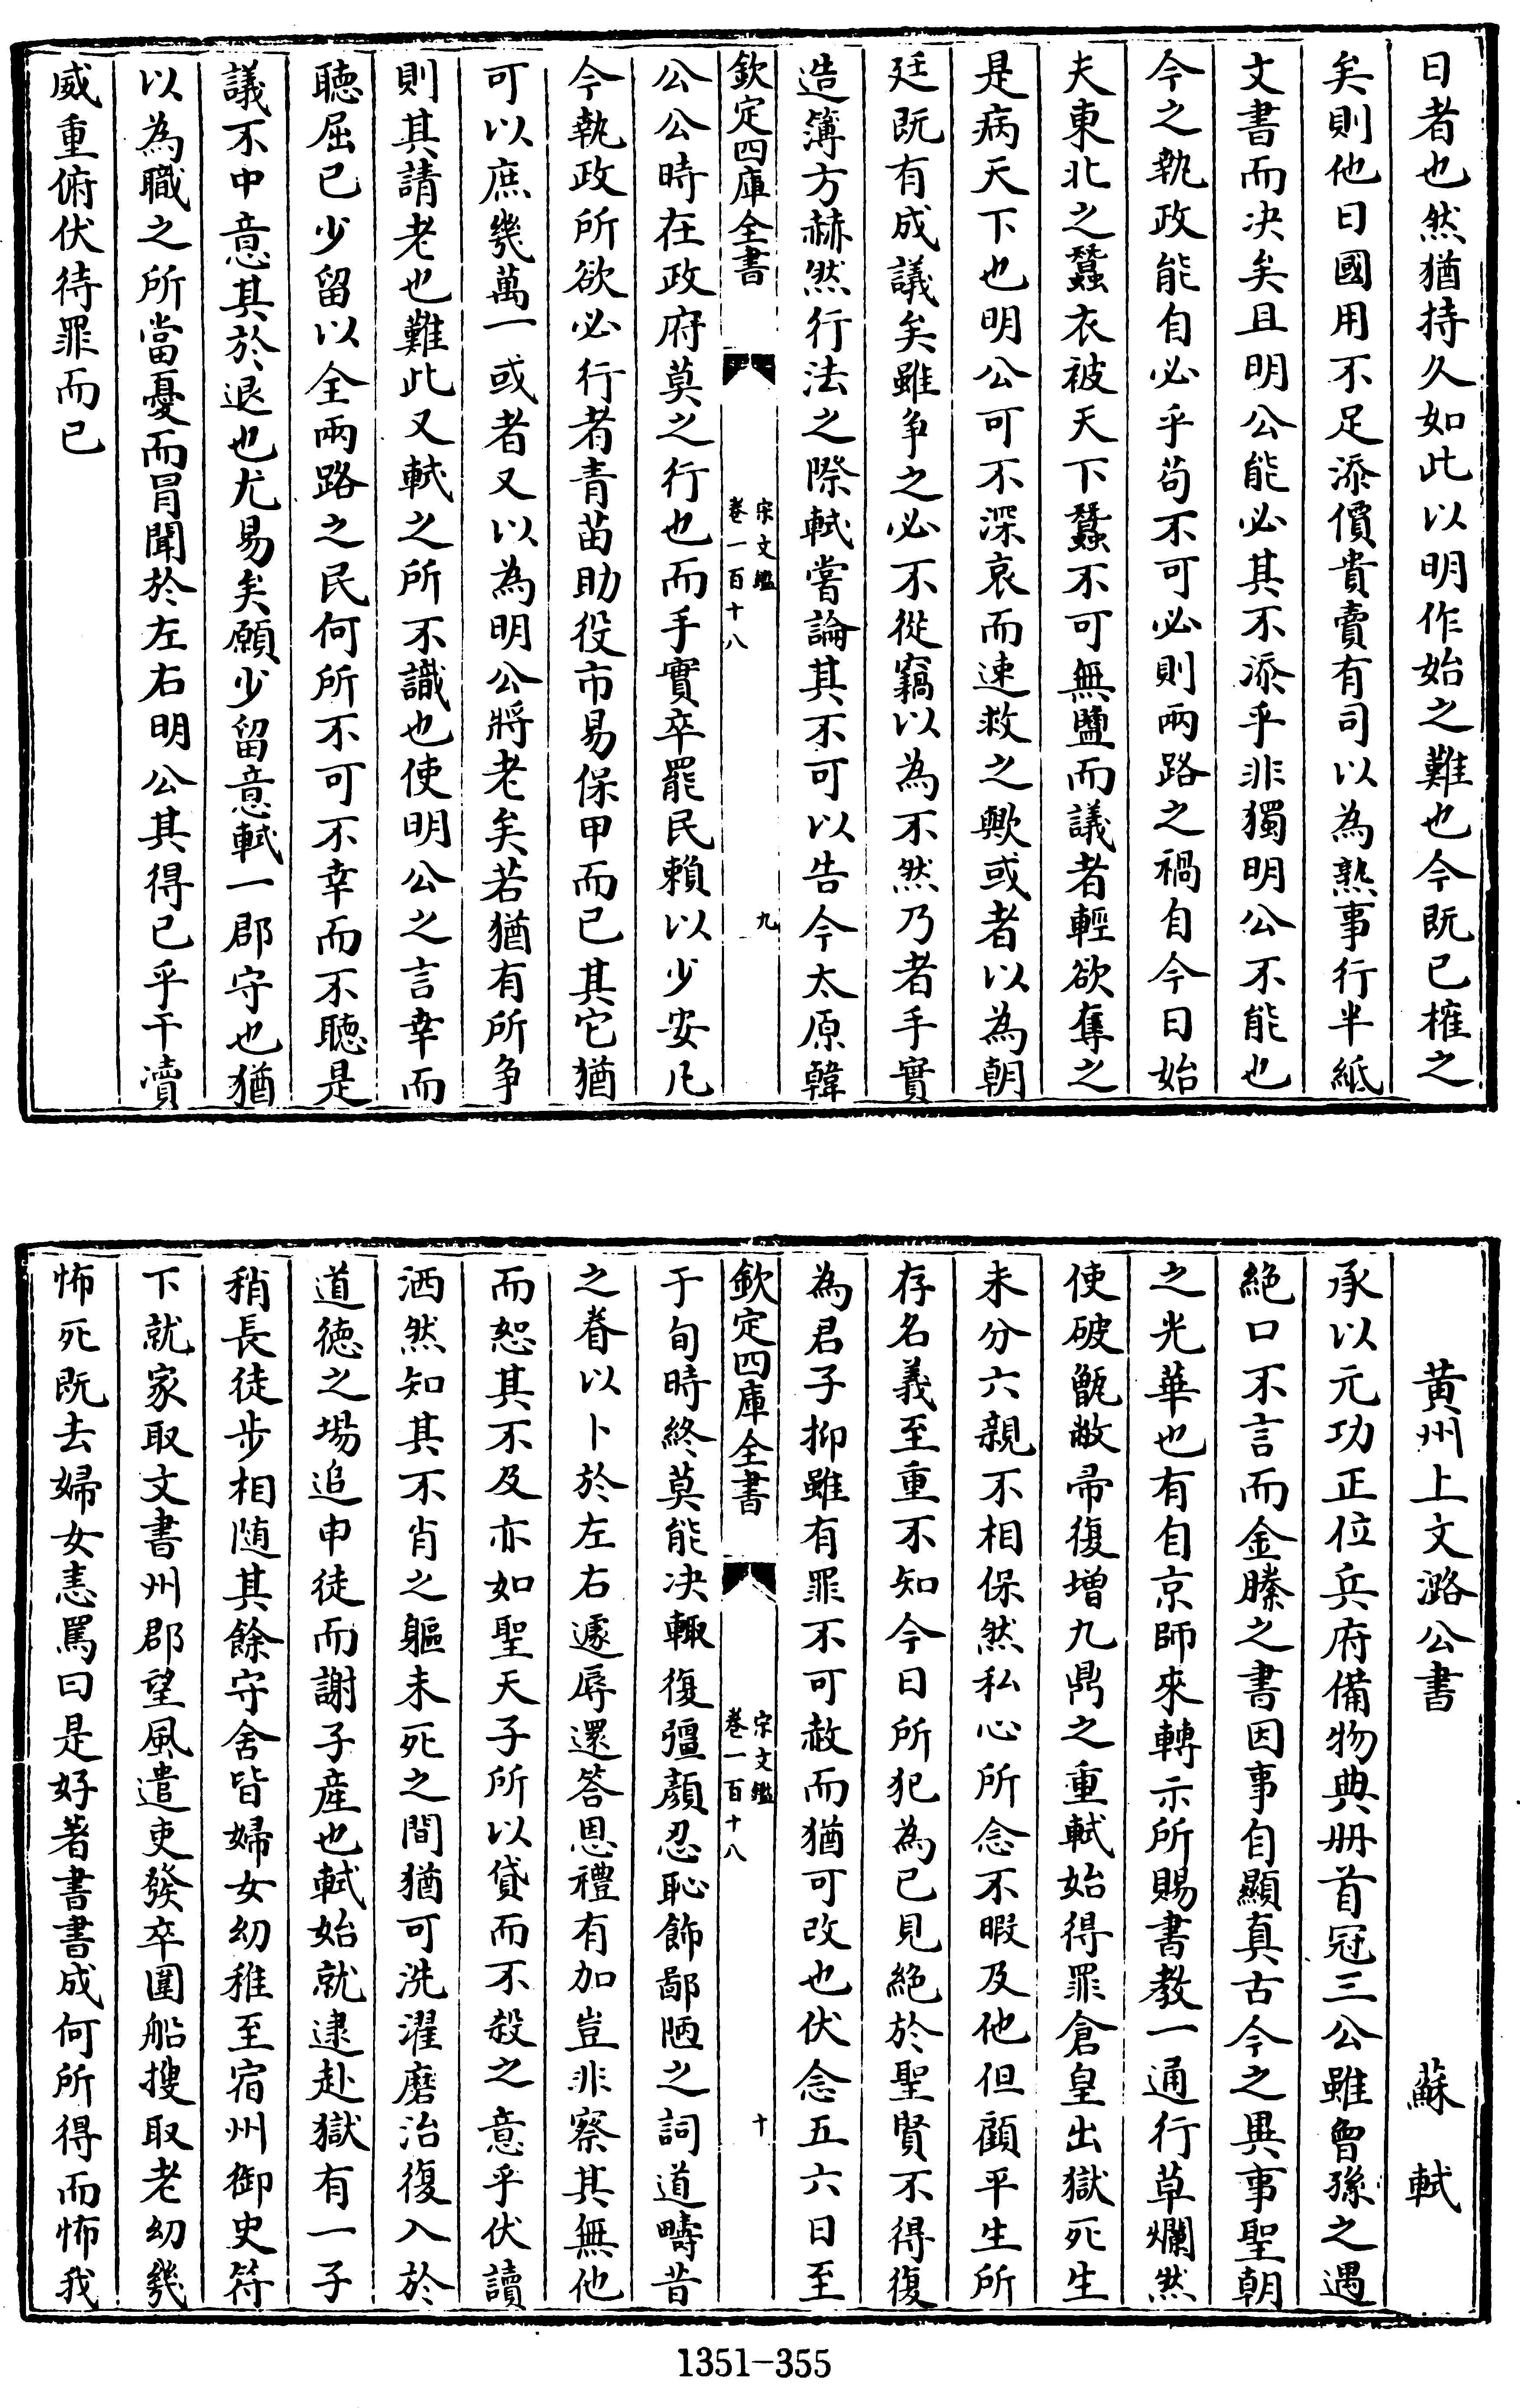 日者也然猶持久如此以明作始之難也今既已榷之
矣則他日國用不足添價貴賣有司以為熟事行半紙
文書而决矣且明公能必其不添乎非獨明公不能也
今之執政能自必乎苟不可必則兩路之禍自今日始
夫東北之蠶衣被天下蠶不可無鹽而議者輕欲奪之
是病天下也明公可不深哀而速救之歟或者以為朝
廷既有成議矣雖争之必不從竊以為不然乃者手實
造簿方赫然行法之際軾嘗論其不可以告今太原韓
欽定四庫全書
宋文鑑
卷一百十八
九
公公時在政府莫之行也而手實卒罷民賴以少安凡
今執政所欲必行者青苗助役市易保甲而已其它猶
可以庶幾萬一或者又以為明公將老矣若猶有所争
則其請老也難此又軾之所不識也使明公之言幸而
聽屈已少留以全兩路之民何所不可不幸而不聽是
議不中意其於退也尤易矣願少留意軾一郡守也猶
以為職之所當憂而冐聞於左右明公其得已乎干瀆
威重俯伏待罪而已
黄州上文潞公書 蘇軾
承以元功正位兵府備物典册首冠三公雖曾孫之遇
絶口不言而金縢之書因事自顯真古今之異事聖朝
之光華也有自京師來轉示所賜書教一通行草爛然
使破甑敝帚復增九鼎之重軾始得罪倉皇出獄死生
未分六親不相保然私心所念不暇及他但顧平生所
存名義至重不知今日所犯為已見絶於聖賢不得復
為君子抑雖有罪不可赦而猶可改也伏念五六日至
欽定四庫全書
宋文鑑
卷一百十八
十
于旬時終莫能决輒復彊顔忍恥飾鄙陋之詞道疇昔
之眷以卜於左右遽辱還答恩禮有加豈非察其無他
而恕其不及亦如聖天子所以貸而不殺之意乎伏讀
洒然知其不肖之軀未死之間猶可洗濯磨治復入於
道徳之場追申徒而謝子産也軾始就逮赴獄有一子
稍長徒步相随其餘守舍皆婦女幼稚至宿州御史符
下就家取文書州郡望風遣吏發卒圍船搜取老幼幾
怖死既去婦女恚罵曰是好著書書成何所得而怖我
1351-355